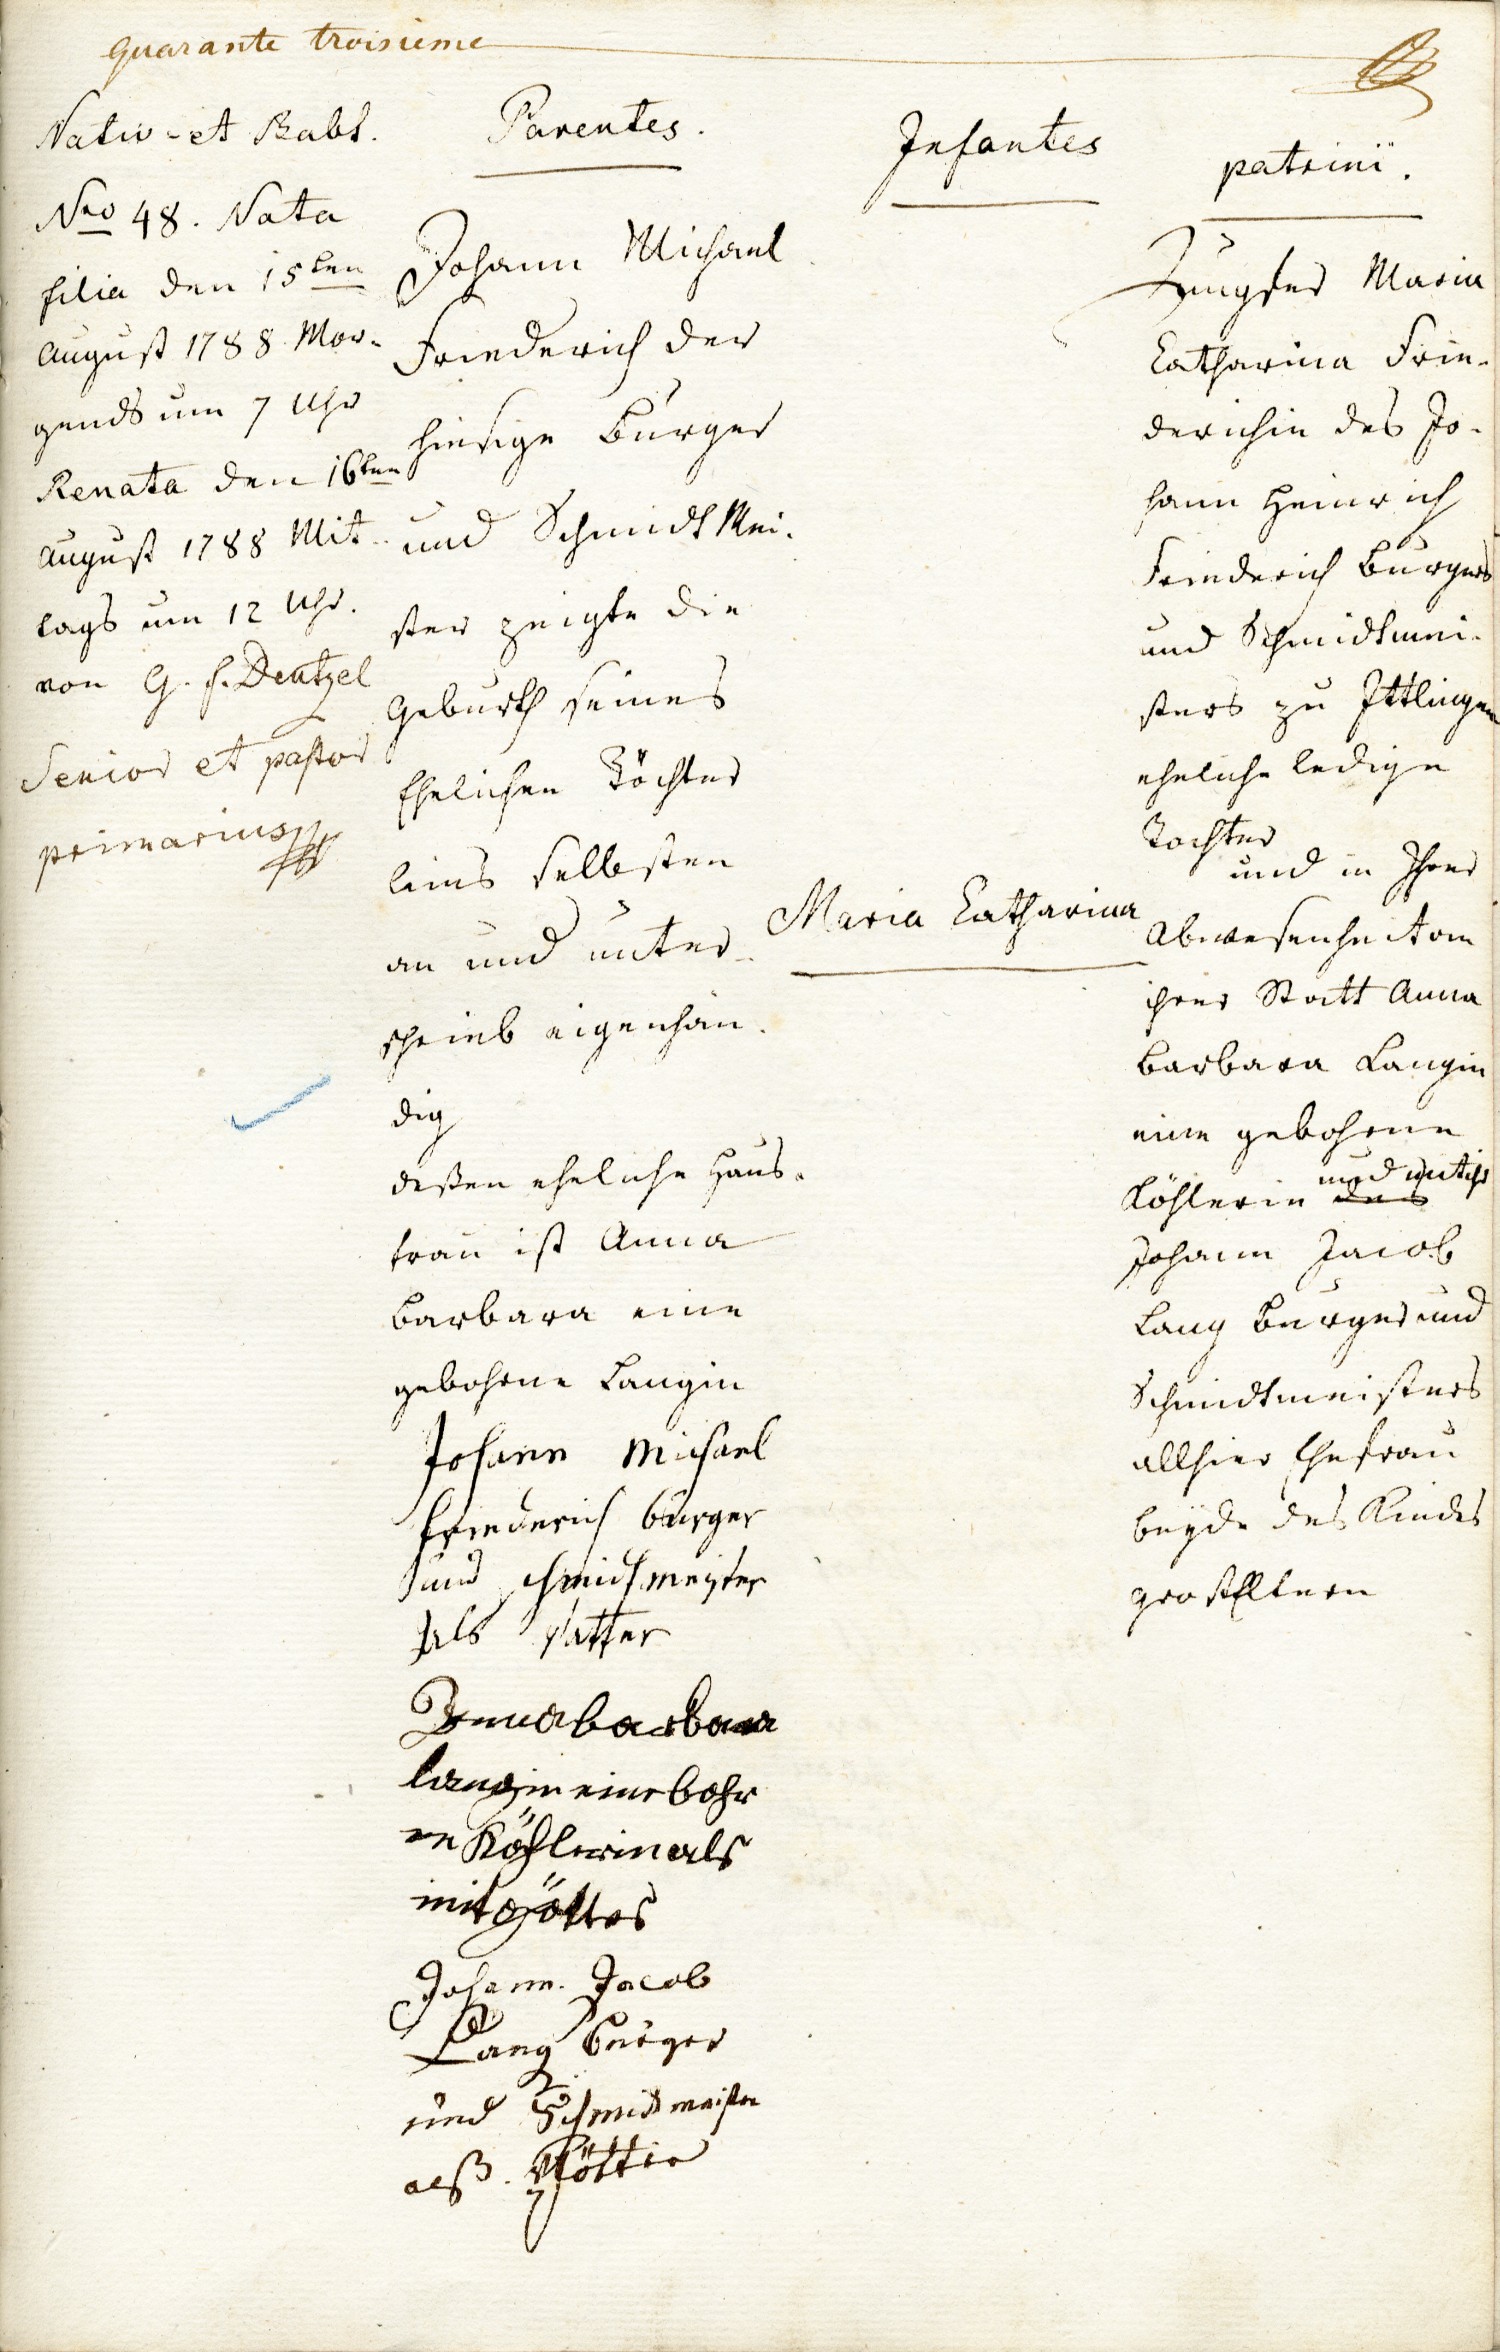 quarante troisieme
Nativ-et Babt.
No 48. Nata
filia den 15ten
August 1788 Mor-
gends um 7 Uhr
Renata den 16ten
August 1788 Mit-
tags um 12 Uhr.
von G. f. Dentzel
Senior et pastor
primarius
Parentes.
Johann Michael
Friederich der
hiesige Burger
und Schmidt Mei-
ster zeigte die
Geburth seines
Ehelichen Töchter
leins selbsten
an und unter-
schrieb eigenhän-
dig
deßen eheliche Haus-
frau ist Anna
Barbara eine
gebohrne Langin
Johann Michael
friederich burger
und schmidtmeister
Als Vatter
Anna barbara
langin eine bohr
ne Köhlerin als
mit Göttes
Johann. Jacob
Lang burger
und Schmidmeister
alß.
Infantes
Maria Catharina
patrini.
Jungfer Maria
Catharina Frie-
derichin des Jo-
hann Heinrich
Friederich Burgers
und Schmidtmei-
sters zu Ittlingen
eheliche ledige
Tochter
und in Ihrer
Abwesenheit an
ihrer Statt Anna
Barbara Langin
eine gebohrne
Köhlerin des und
Johann Jacob
Lang Burger und
Schmidtmeisters
allhier Ehefrau
beyde des Kindes
grosElltern